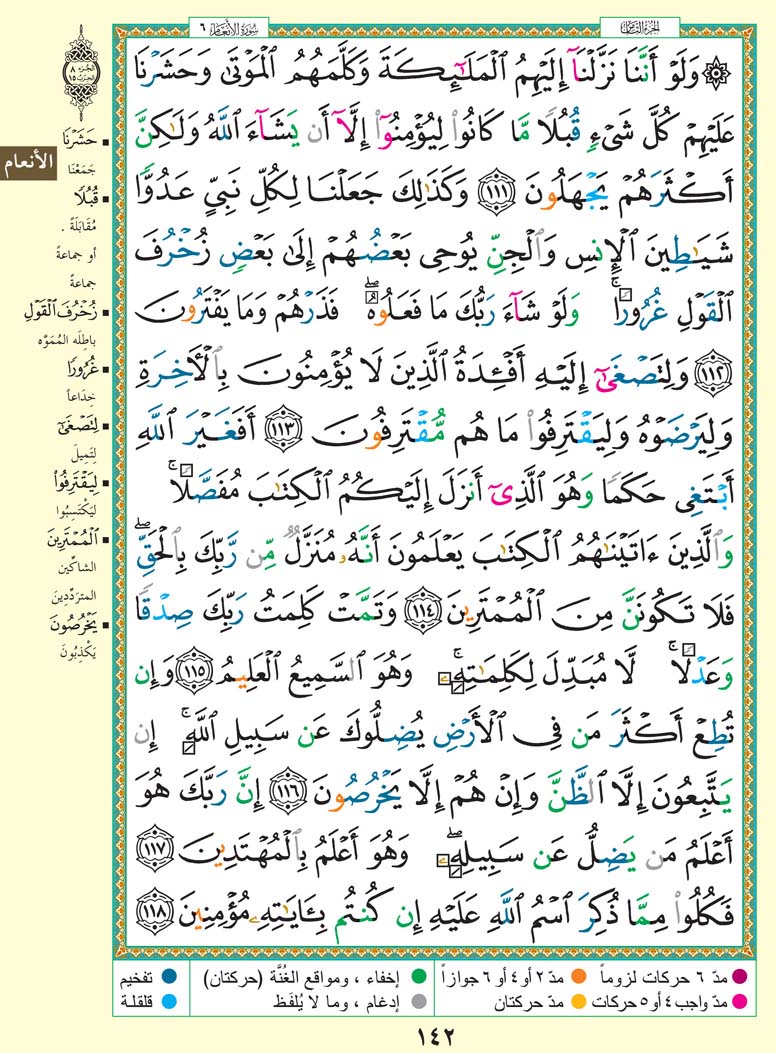 سُورَةُ الأَنْعَام ٦
الجُزءُ الثَّامِنُ
۞ وَلَوْ أَنَّنَا نَزَّلْنَآ إِلَيْهِمُ ٱلْمَلَـٰٓئِكَةَ وَكَلَّمَهُمُ ٱلْمَوْتَىٰ وَحَشَرْنَا
عَلَيْهِمْ كُلَّ شَىْءٍ قُبُلًا مَّا كَانُوا۟ لِيُؤْمِنُوٓا۟ إِلَّآ أَن يَشَآءَ ٱللَّهُ وَلَـٰكِنَّ
أَكْثَرَهُمْ يَجْهَلُونَ ١١١ وَكَذَٰلِكَ جَعَلْنَا لِكُلِّ نَبِىٍّ عَدُوًّا
شَيَـٰطِينَ ٱلْإِنسِ وَٱلْجِنِّ يُوحِى بَعْضُهُمْ إِلَىٰ بَعْضٍ زُخْرُفَ
ٱلْقَوْلِ غُرُورًا ۚ وَلَوْ شَآءَ رَبُّكَ مَا فَعَلُوهُ ۖ فَذَرْهُمْ وَمَا يَفْتَرُونَ
١١٢ وَلِتَصْغَىٰٓ إِلَيْهِ أَفْـِٔدَةُ ٱلَّذِينَ لَا يُؤْمِنُونَ بِٱلْـَٔاخِرَةِ
وَلِيَرْضَوْهُ وَلِيَقْتَرِفُوا۟ مَا هُم مُّقْتَرِفُونَ ١١٣ أَفَغَيْرَ ٱللَّهِ
أَبْتَغِى حَكَمًا وَهُوَ ٱلَّذِىٓ أَنزَلَ إِلَيْكُمُ ٱلْكِتَـٰبَ مُفَصَّلًا ۚ
وَٱلَّذِينَ ءَاتَيْنَـٰهُمُ ٱلْكِتَـٰبَ يَعْلَمُونَ أَنَّهُۥ مُنَزَّلٌ مِّن رَّبِّكَ بِٱلْحَقِّ ۖ
فَلَا تَكُونَنَّ مِنَ ٱلْمُمْتَرِينَ ١١٤ وَتَمَّتْ كَلِمَتُ رَبِّكَ صِدْقًا
وَعَدْلًا ۚ لَّا مُبَدِّلَ لِكَلِمَـٰتِهِۦ ۚ وَهُوَ ٱلسَّمِيعُ ٱلْعَلِيمُ ١١٥ وَإِن
تُطِعْ أَكْثَرَ مَن فِى ٱلْأَرْضِ يُضِلُّوكَ عَن سَبِيلِ ٱللَّهِ ۚ إِن
يَتَّبِعُونَ إِلَّا ٱلظَّنَّ وَإِنْ هُمْ إِلَّا يَخْرُصُونَ ١١٦ إِنَّ رَبَّكَ هُوَ
أَعْلَمُ مَن يَضِلُّ عَن سَبِيلِهِۦ ۖ وَهُوَ أَعْلَمُ بِٱلْمُهْتَدِينَ ١١٧
فَكُلُوا۟ مِمَّا ذُكِرَ ٱسْمُ ٱللَّهِ عَلَيْهِ إِن كُنتُم بِـَٔايَـٰتِهِۦ مُؤْمِنِينَ ١١٨
الجزء ٨
الحزب ١٥
الأنعام
▪ حَشَرْنَا
جَمَعْنَا
▪ قُبُلًا
مُقَابَلَةً .
أو جماعةً
جماعةً
▪ زُخْرُفَ ٱلْقَوْلِ
باطِلَه المُمَوَّه
▪ غُرُورًا
خِدَاعاً
▪ لِتَصْغَىٰٓ
لِتَمِيلَ
▪ لِيَقْتَرِفُوا۟
لِيَكْتَسِبُوا
▪ ٱلْمُمْتَرِينَ
الشاكِّين
المتردِّدِينَ
▪ يَخْرُصُونَ
يَكْذِبُونَ
● مدّ ٦ حركات لزوماً ● مدّ ٢ أو ٤ أو ٦ جوازاً ● إخفاء ، ومواقع الغُنَّة (حركتان) ● تفخيم
● مدّ واجب ٤ أو ٥ حركات ● مدّ حركتان ● إدغام ، وما لا يُلفَظ ● قلقلة
١٤٢